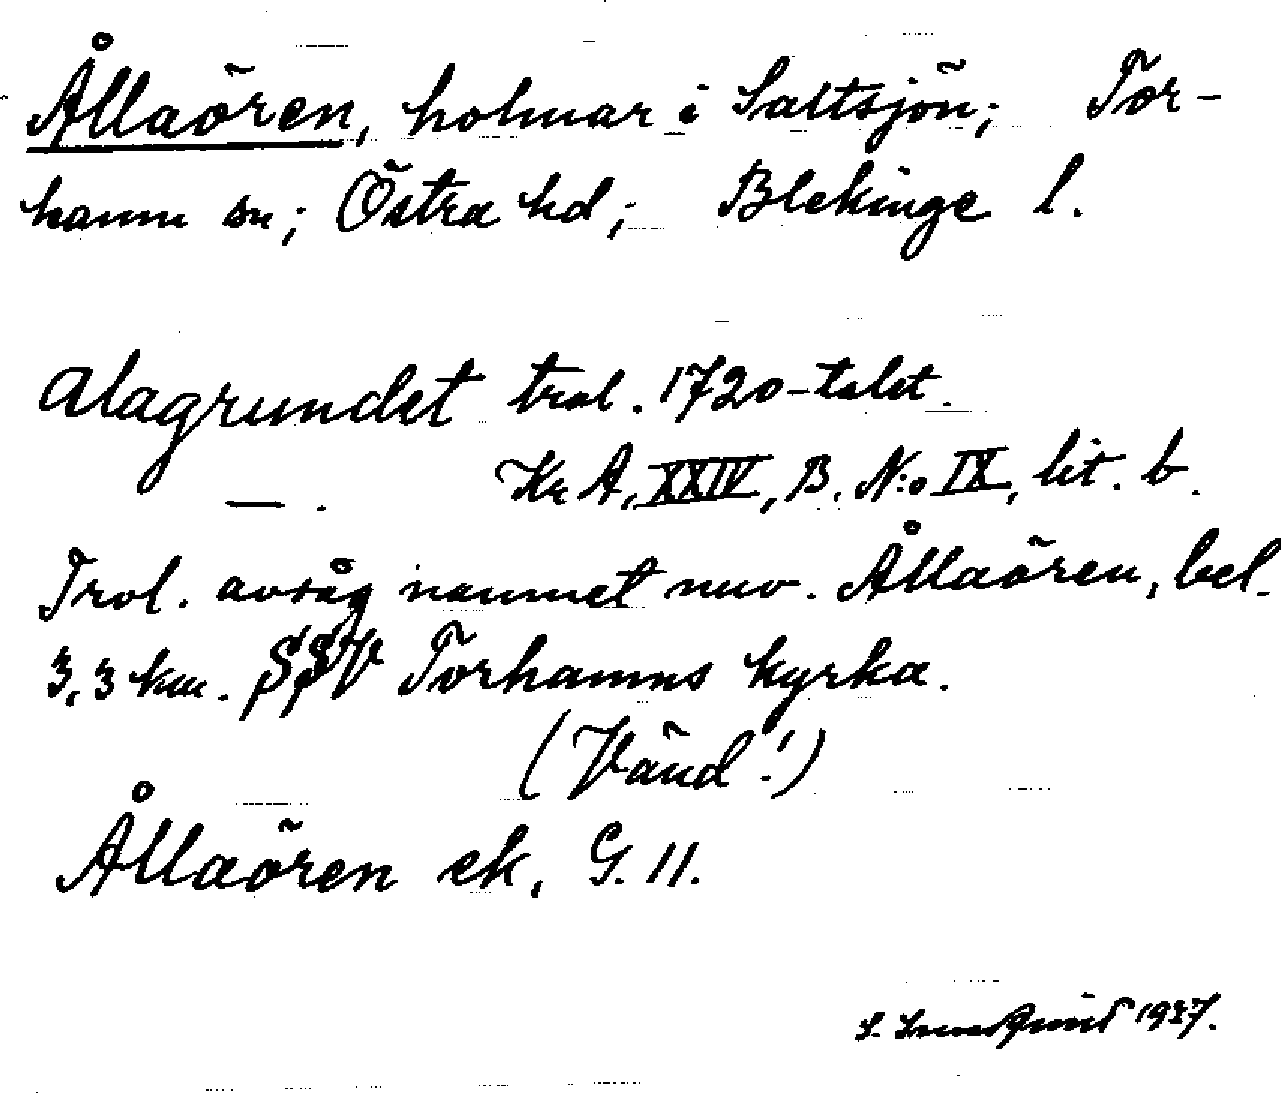 Ållaören, holmar i Saltsjön; Tor-
hamn sn; Östra hd; Blekinge l.
Alagrundet trol. 1720-talet.
—. Kr A, XXIV, B. N:o IX, lit. b.
Trol. avsåg namnet nuv. Ållaören, bel.
3,3 km. SSV Torhamns kyrka.
(Vänd!)
Ållaören ek. G. 11.
S. 1937.